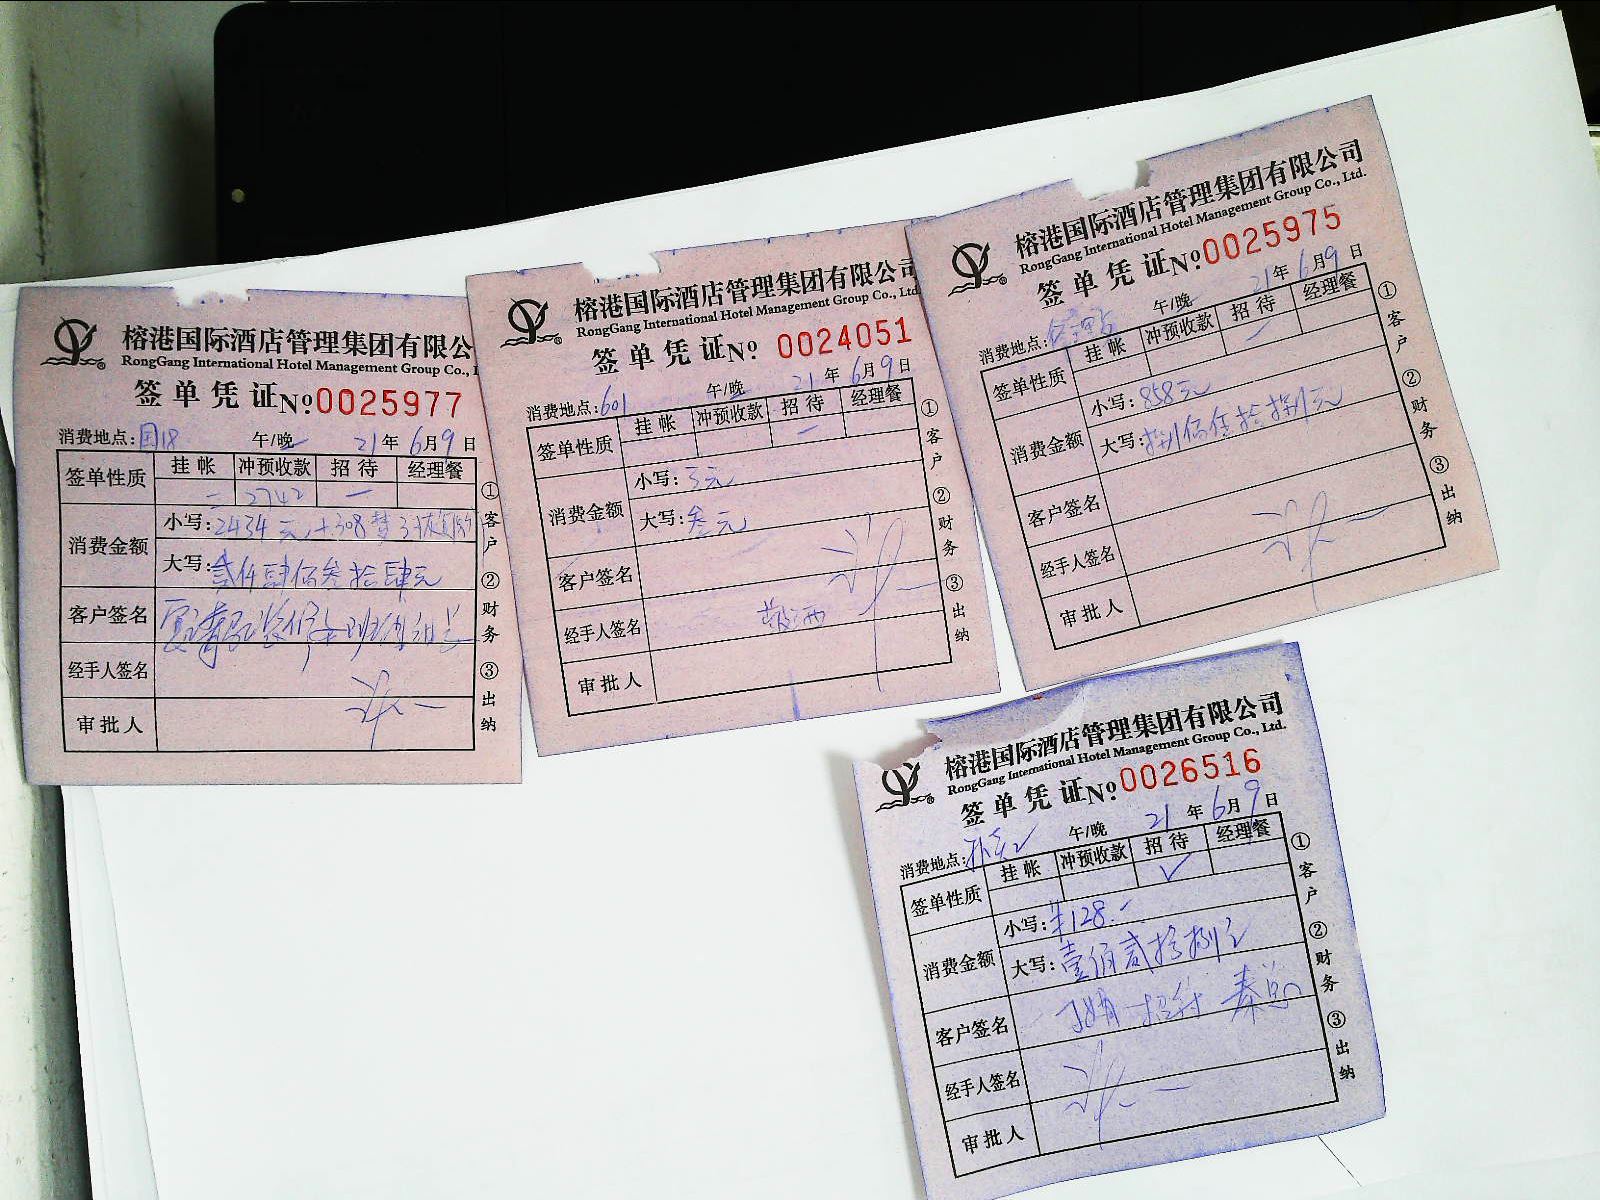 榕港国际酒店管理集团有限公
RongGang International Hotel Management Group Co.,
签单凭证 No 0025977
消费地点:国18 午/晚 21年6月9日
签单性质 挂帐 冲预收款 招待 经理餐
2742
消费金额 小写:2434元+308
大写:贰仟肆佰叁拾肆元
客户签名
经手人签名
审批人
①客户 ②财务 ③出纳
榕港国际酒店管理集团有限公司
RongGang International Hotel Management Group Co., Ltd.
签单凭证 No 0024051
消费地点:601 午/晚 21年6月9日
签单性质 挂帐 冲预收款 招待 经理餐
消费金额 小写:3元
大写:叁元
客户签名
经手人签名
审批人
①客户 ②财务 ③出纳
榕港国际酒店管理集团有限公司
RongGang International Hotel Management Group Co., Ltd.
签单凭证 No 0025975
消费地点: 午/晚 21年6月9日
签单性质 挂帐 冲预收款 招待 经理餐
消费金额 小写:858元
大写:捌佰伍拾捌元
客户签名
经手人签名
审批人
①客户 ②财务 ③出纳
榕港国际酒店管理集团有限公司
RongGang International Hotel Management Group Co., Ltd.
签单凭证 No 0026516
消费地点: 午/晚 21年6月9日
签单性质 挂帐 冲预收款 招待 经理餐
✓
消费金额 小写:¥128.-
大写:壹佰贰拾捌元
客户签名 招待 秦总
经手人签名
审批人
①客户 ②财务 ③出纳